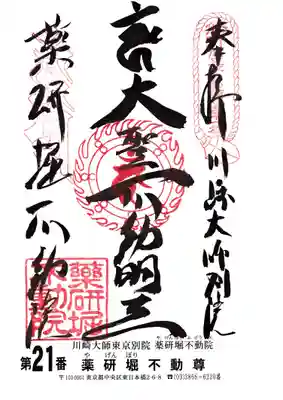 奉拝 川崎大師別院
大聖不動明王
薬研堀不動院
薬研堀不動院
川崎大師東京別院 薬研堀不動院
や げん ぼり
第21番 薬研堀不動尊
東京都中央区東日本橋2-6-8 ☎(03)3866-6220番